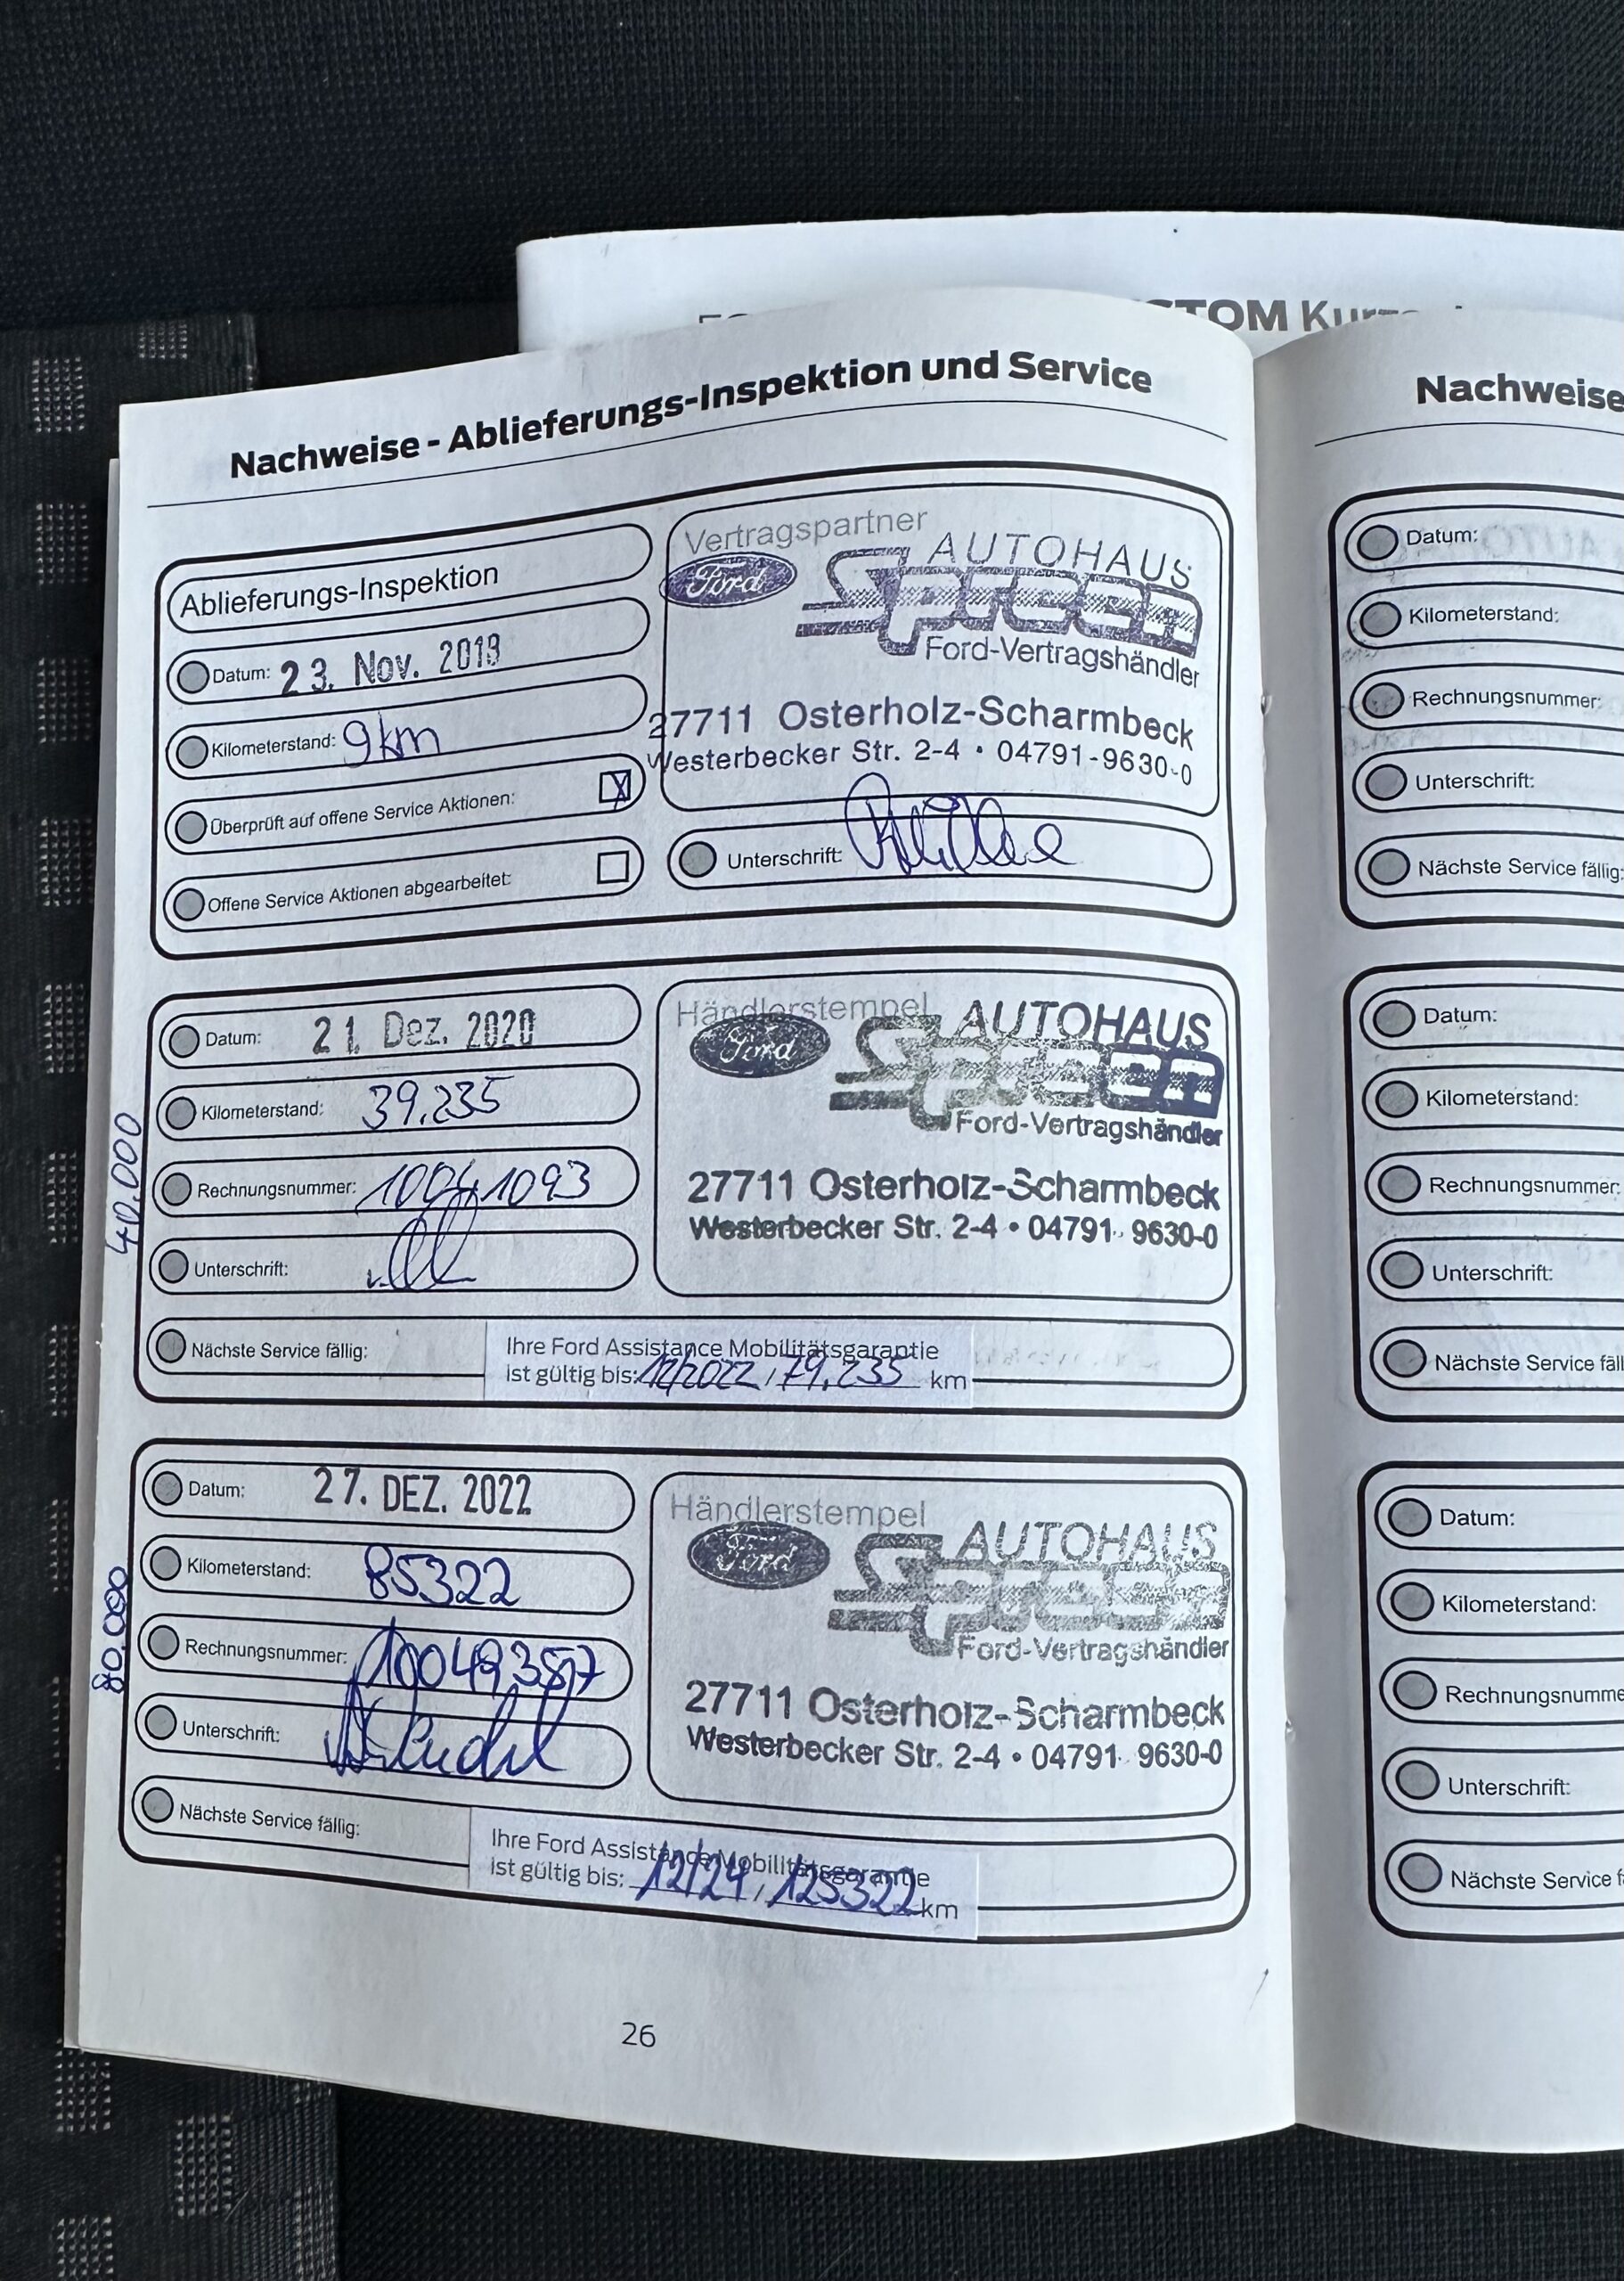 STOM
Nachweise - Ablieferungs-Inspektion und Service
Ablieferungs-Inspektion
Datum: 23. Nov. 2018
Kilometerstand: 9 km
Überprüft auf offene Service Aktionen: X
Offene Service Aktionen abgearbeitet:
Vertragspartner
Ford
AUTOHAUS
Spreen
Ford-Vertragshändler
27711 Osterholz-Scharmbeck
Westerbecker Str. 2-4 • 04791-9630-0
Unterschrift:
40.000
Datum: 21. Dez. 2020
Kilometerstand: 39.235
Rechnungsnummer: 10041093
Unterschrift:
Händlerstempel
Ford
AUTOHAUS
Spreen
Ford-Vertragshändler
27711 Osterholz-Scharmbeck
Westerbecker Str. 2-4 • 04791 9630-0
Nächste Service fällig:
Ihre Ford Assistance Mobilitätsgarantie
ist gültig bis: 12/2022 / 79.235 km
80.000
Datum: 27. DEZ. 2022
Kilometerstand: 85322
Rechnungsnummer:
Unterschrift:
Händlerstempel
Ford
AUTOHAUS
Spreen
Ford-Vertragshändler
27711 Osterholz-Scharmbeck
Westerbecker Str. 2-4 • 04791 9630-0
Nächste Service fällig:
Ihre Ford Assistance Mobilitätsgarantie
ist gültig bis: 12/24 / 125322 km
26
Nachweise
Datum:
Kilometerstand:
Rechnungsnummer:
Unterschrift:
Nächste Service fällig:
Datum:
Kilometerstand:
Rechnungsnummer:
Unterschrift:
Nächste Service fäll
Datum:
Kilometerstand:
Rechnungsnumme
Unterschrift:
Nächste Service f